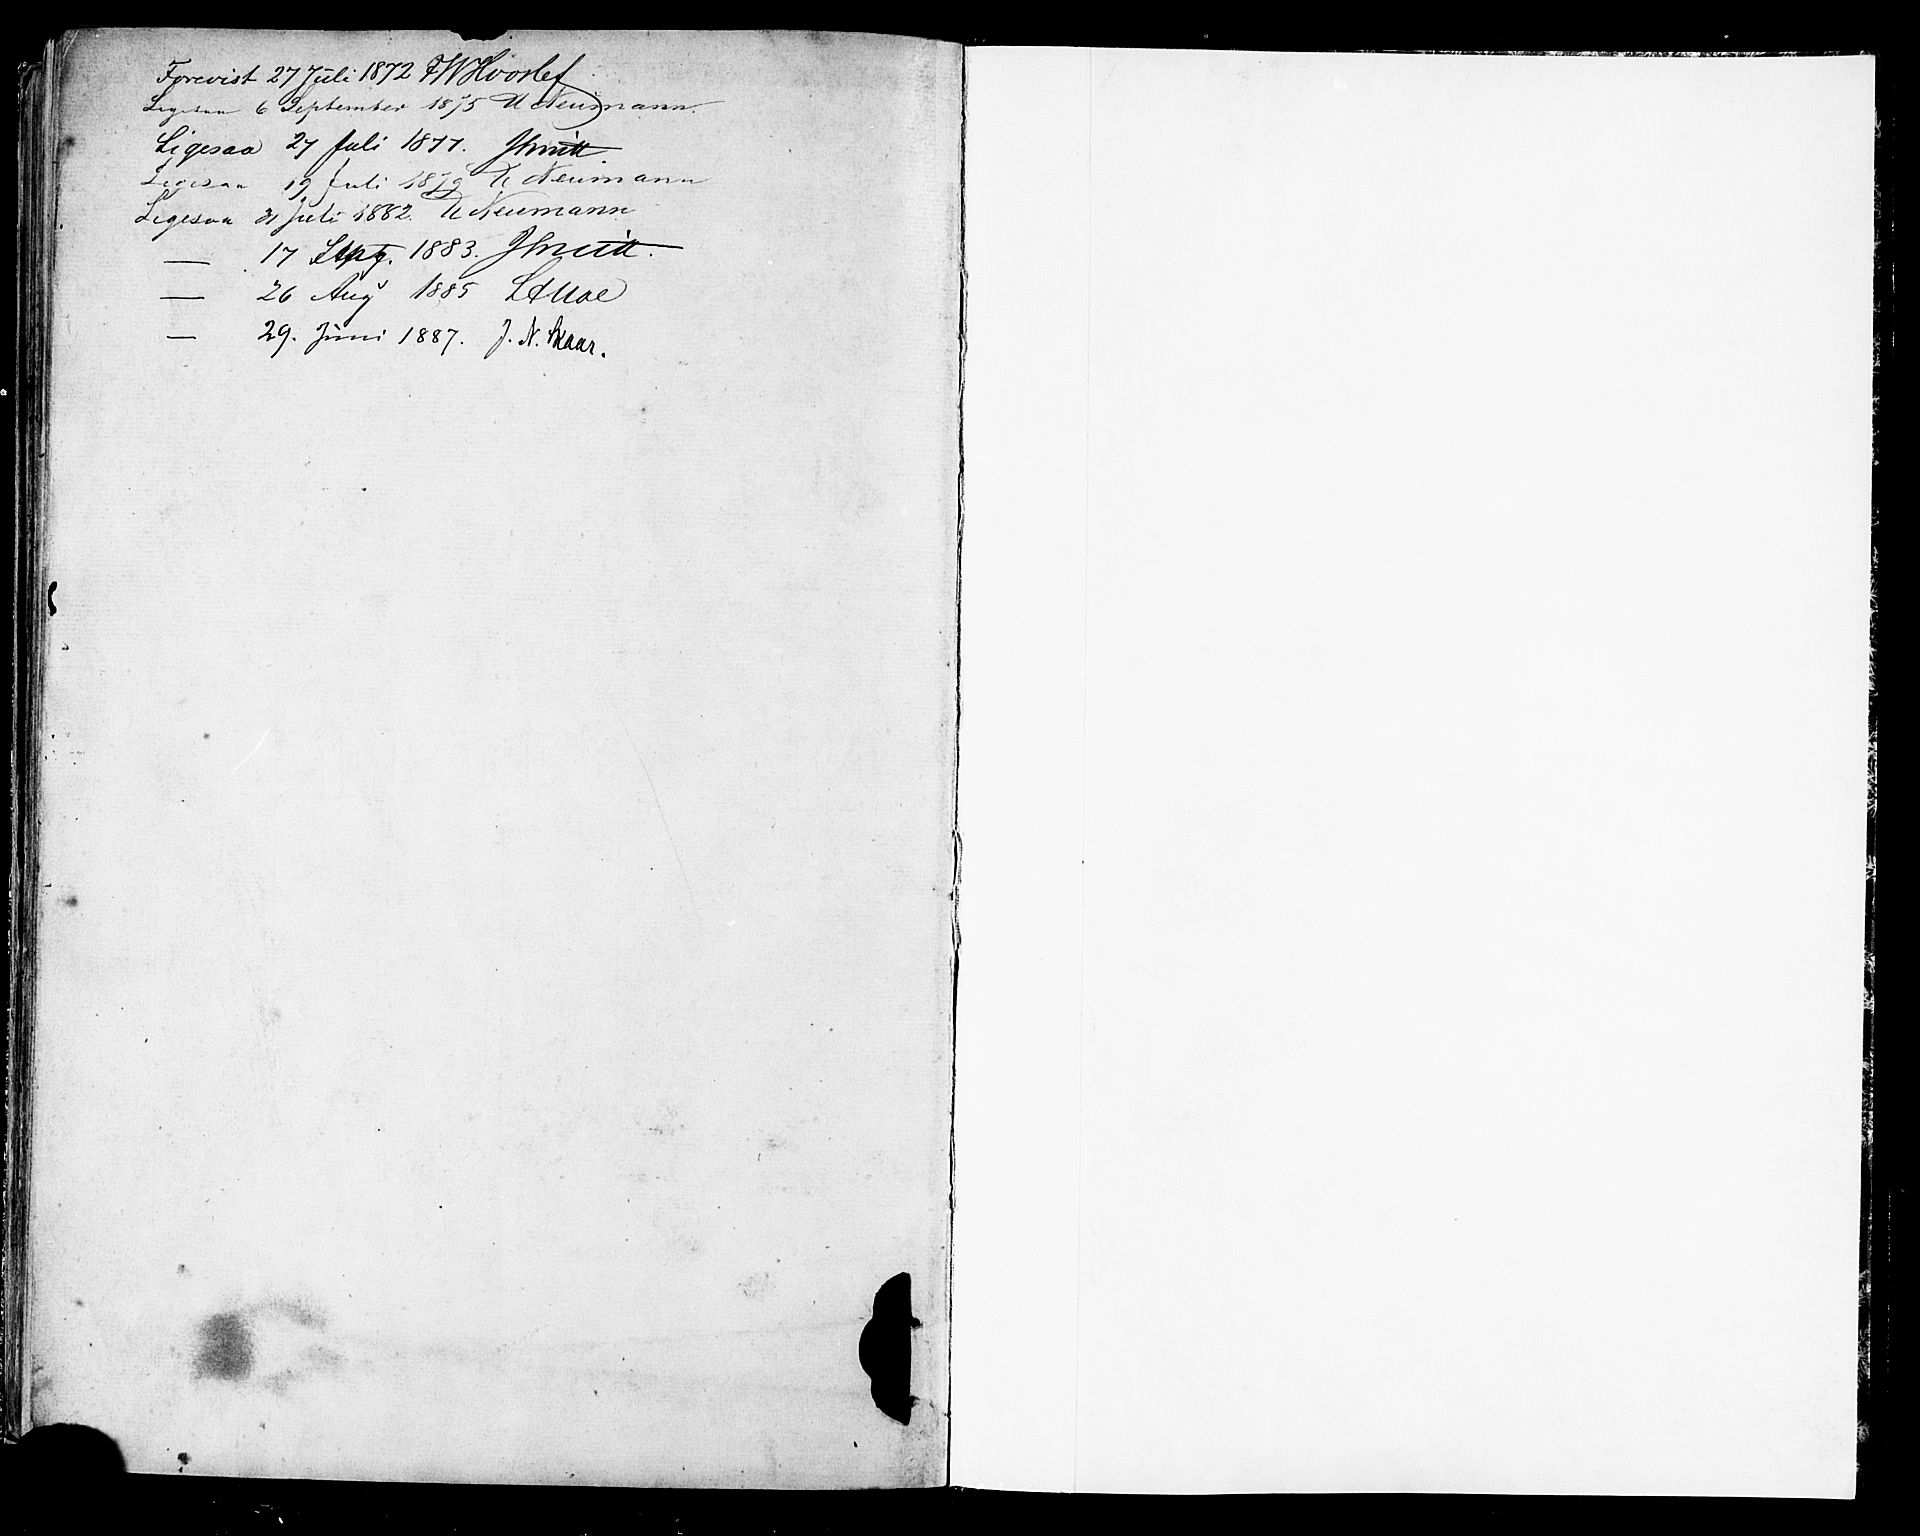 Forevist 27 Juli 1872 FWHvoslef
Ligesaa 6 September 1875 Neumann
Ligesaa 27 Juli 1877. JSmitt
Ligesaa 19 Juli 1879 Neumann
Ligesaa 21 Juli 1882. Neumann
— 17 Septg. 1883. JSmitt.
— 26 Aug 1885
— 29. Juni 1887. J. N. Skaar.